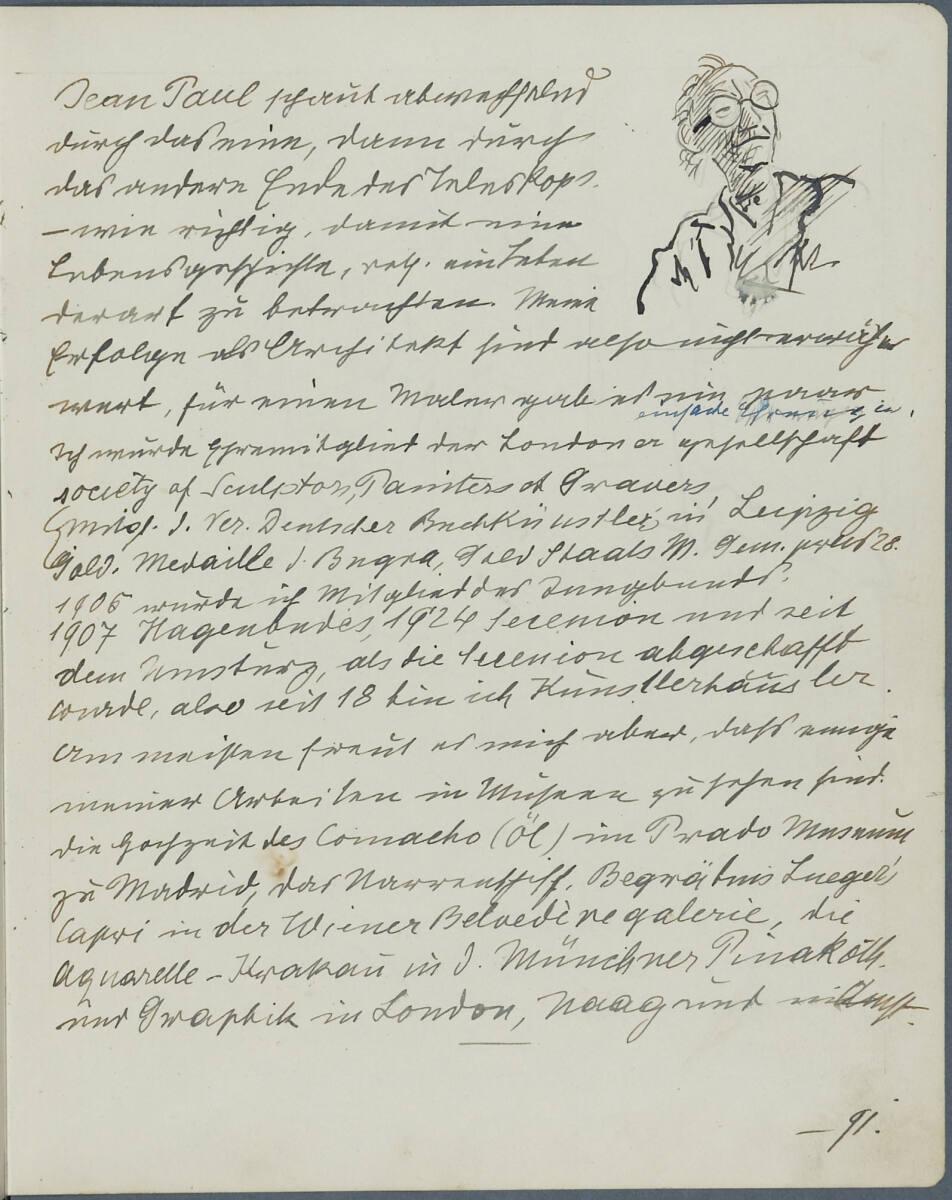 Jean Paul schaut abwechselnd
durch das eine, dann durch
das andere Ende des Teleskops.
– wie richtig, damit eine
Lebensgeschichte, resp. ein Leben
derart zu betrachten. Meine
Erfolge als Architekt sind also nicht erwähnens
wert, für einen Maler gab es ein paar
einfache Ehrungen.
Ich wurde Ehrenmitglied der Londoner Gesellschaft
society of Sculptors, Painters et Gravers,
Ehmitgl. d. Ver. Deutscher Buchkünstler, in Leipzig
Gold. Medaille d. Bugra, Gold Staats M. Gem. preis 28.
1906 wurde ich Mitglied des Jungbunds.
1907 Hagenbundes, 1924 Secession und seit
dem Umsturz, als die Secession abgeschafft
wurde, also seit 18 bin ich Künstlerhäusler.
Am meisten freut es mich aber, dass einige
meiner Arbeiten in Museen zu sehen sind.
die Hochzeit des Comacho (Öl) im Prado Museum
zu Madrid, das Narrenschiff, Begräbnis Luegers
Capri in der Wiener Belvedèregalerie, die
Aquarelle – Krakau in d. Münchner Pinakoth.
und Graphik in London, Haag und
– 91.